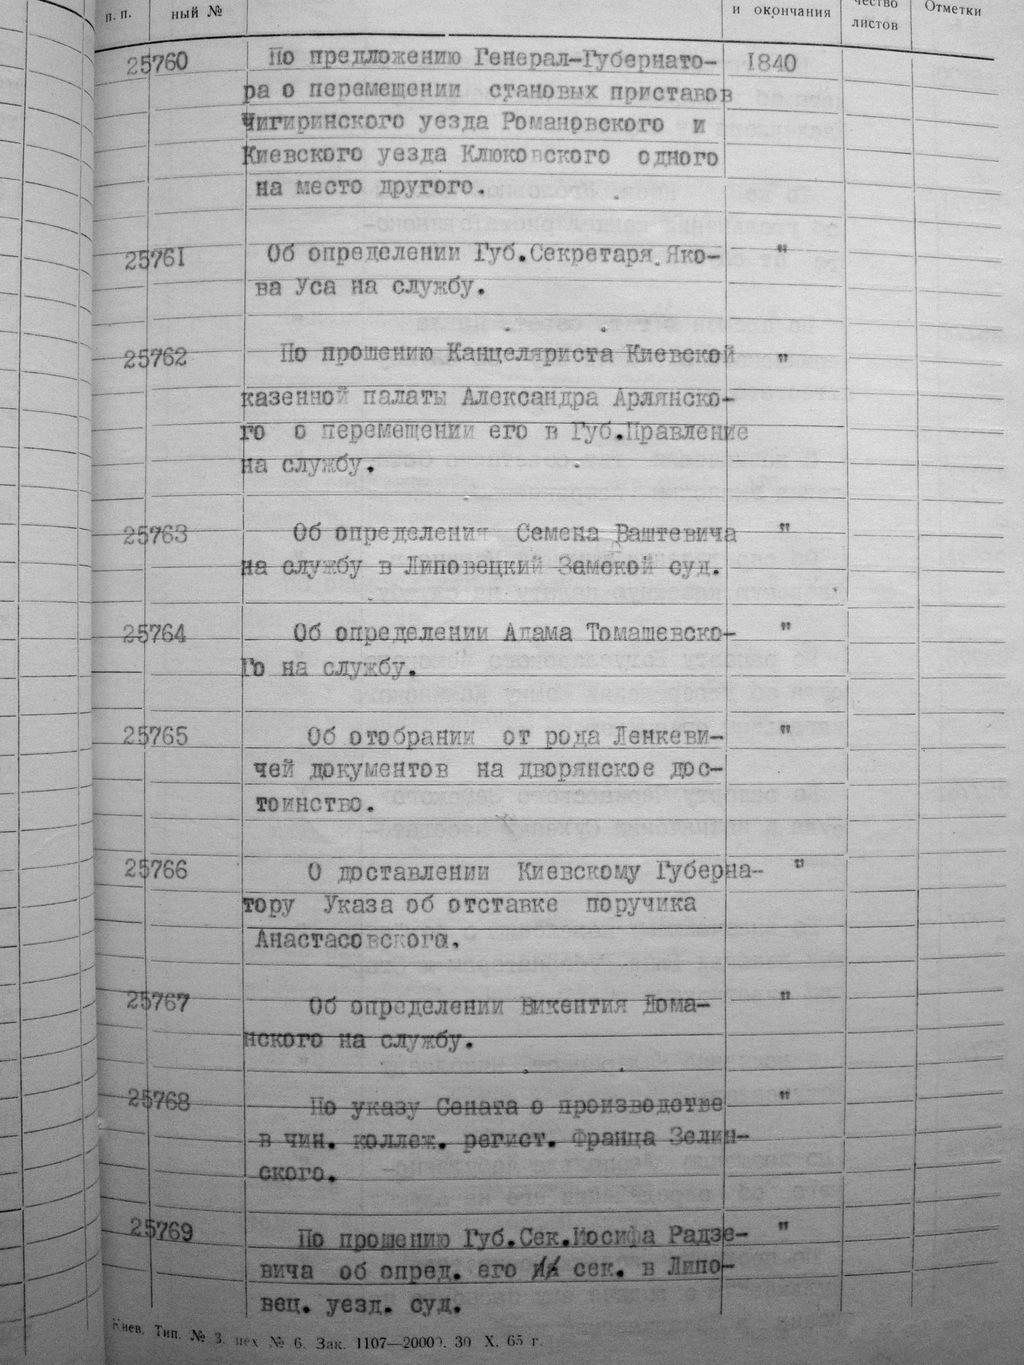 п. п. ный № и окончания чество листов Отметки
25760 По предложению Генерал-Губернато- 1840
ра о перемещении становых приставов
Чигиринского уезда Романовского и
Киевского уезда Клюковского одного
на место другого.
25761 Об определении Губ.Секретаря Яко- "
ва Уса на службу.
25762 По прошению Канцеляриста Киевской "
казенной палаты Александра Арлянско-
го о перемещении его в Губ.Правление
на службу.
25763 Об определения Семена Ваштевича "
на службу в Липовецкий Замской суд.
25764 Об определении Адама Томашевско- "
Го на службу.
25765 Об отобрании от рода Ленкеви- "
чей документов на дворянское дос-
тоинство.
25766 О доставлении Киевскому Губерна- "
тору Указа об отставке поручика
Анастасовского.
25767 Об определении Викентия Дома- "
нского на службу.
25768 По указу Сената о производстве "
в чин. коллеж. регист. Франца Зелин-
ского.
25769 По прошению Губ.Сек.Иосифа Радзе- "
вича об опред. его сек. в Липо-
вец. уезд. суд.
Киев. Тип. № 3. цех № 6. Зак. 1107—20000. 30 X. 65 г.